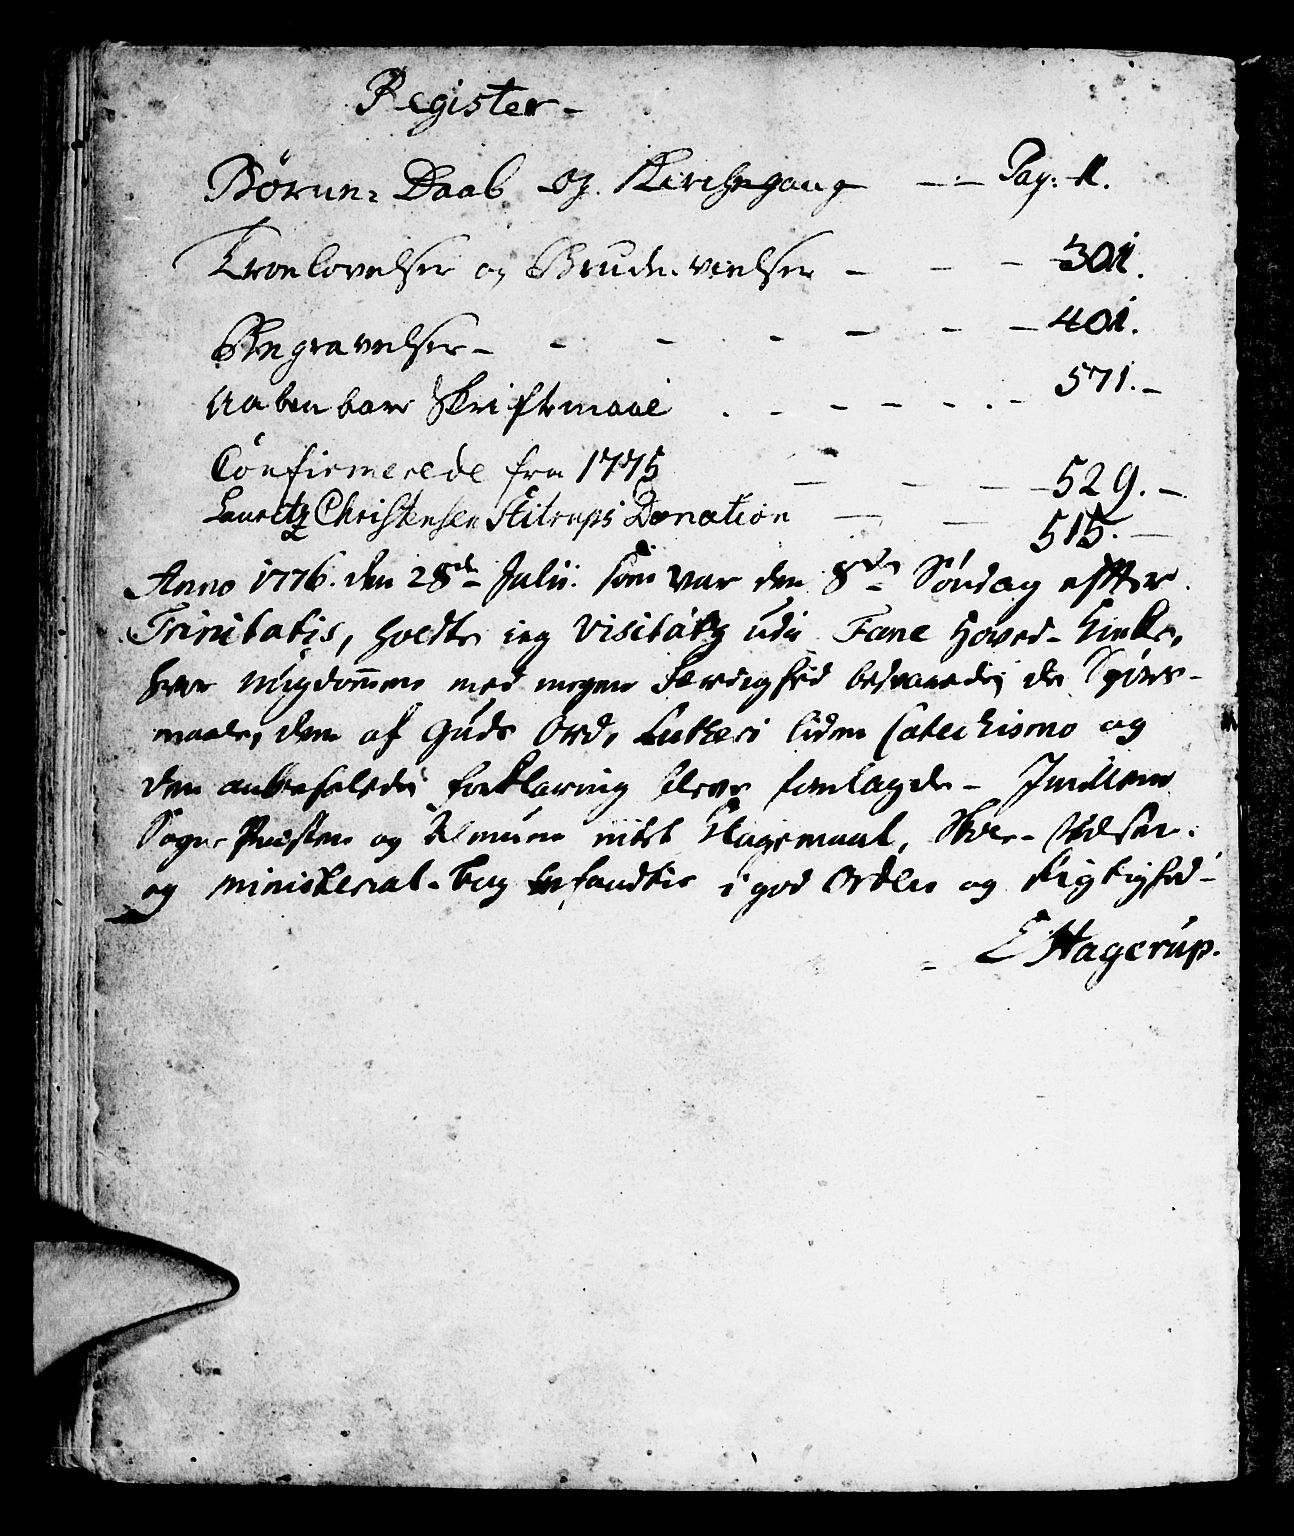 Register -
Børne- Daab og Kirchegang - - Pag: 1.
Troelovelser og Brudevielser - - - 301.
Begravelser - - - - - - 401.
Aabenbare Skriftemaal . - - - - . - 571. -
Confirmerede fra 1775 - - - - 529. -
Lauritz Christensen Stitrups Donation - - 515. -
Anno 1776. den 28de Julii. som var den 8de Søndag efter
Trinitatis, holdte jeg Visitatz udi Fane Hoved-Kirke,
hvor Ungdommen med megen Færdighed besvarede de Spørs-
maale, dem af Guds Ord, Lutheri liden Catechismo og
den anbefalede Forklaring bleve forelagde - Imellem
Sogne-Præsten og Almuen intet Klagemaal,
og Ministerial-Bog befandtes i god Orden og Rigtighed -
E Hagerup.